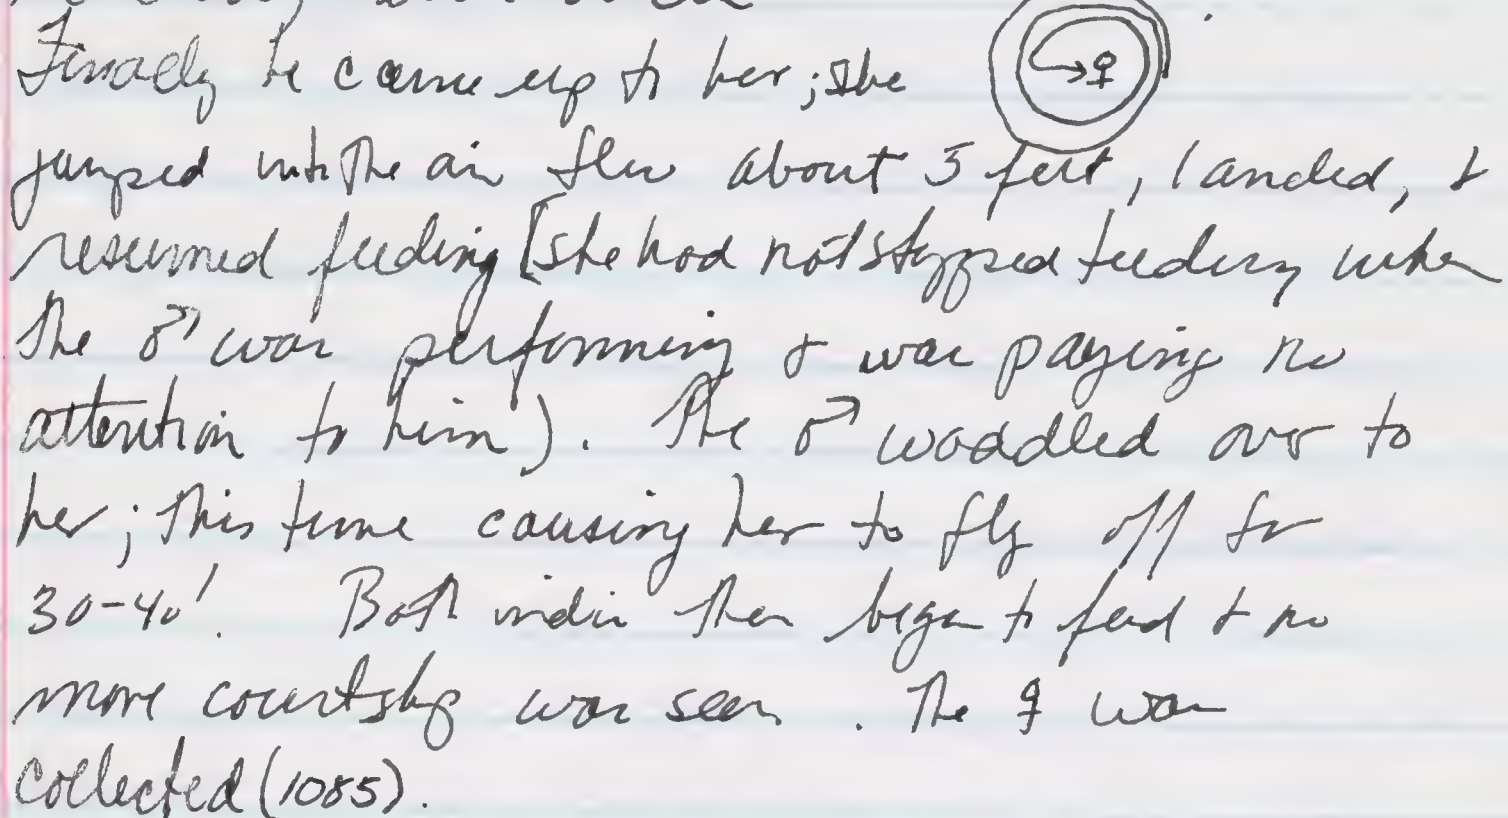 Finally he came up to her; she
♀
jumped into the air flew about 5 feet, landed, &
resumed feeding [she had not stopped feeding when
the ♂ was performing & was paying no
attention to him). The ♂ waddled over to
her; this time causing her to fly off for
30-40'. Both indiv then began to feed & no
more courtship was seen. The ♀ was
collected (1085).